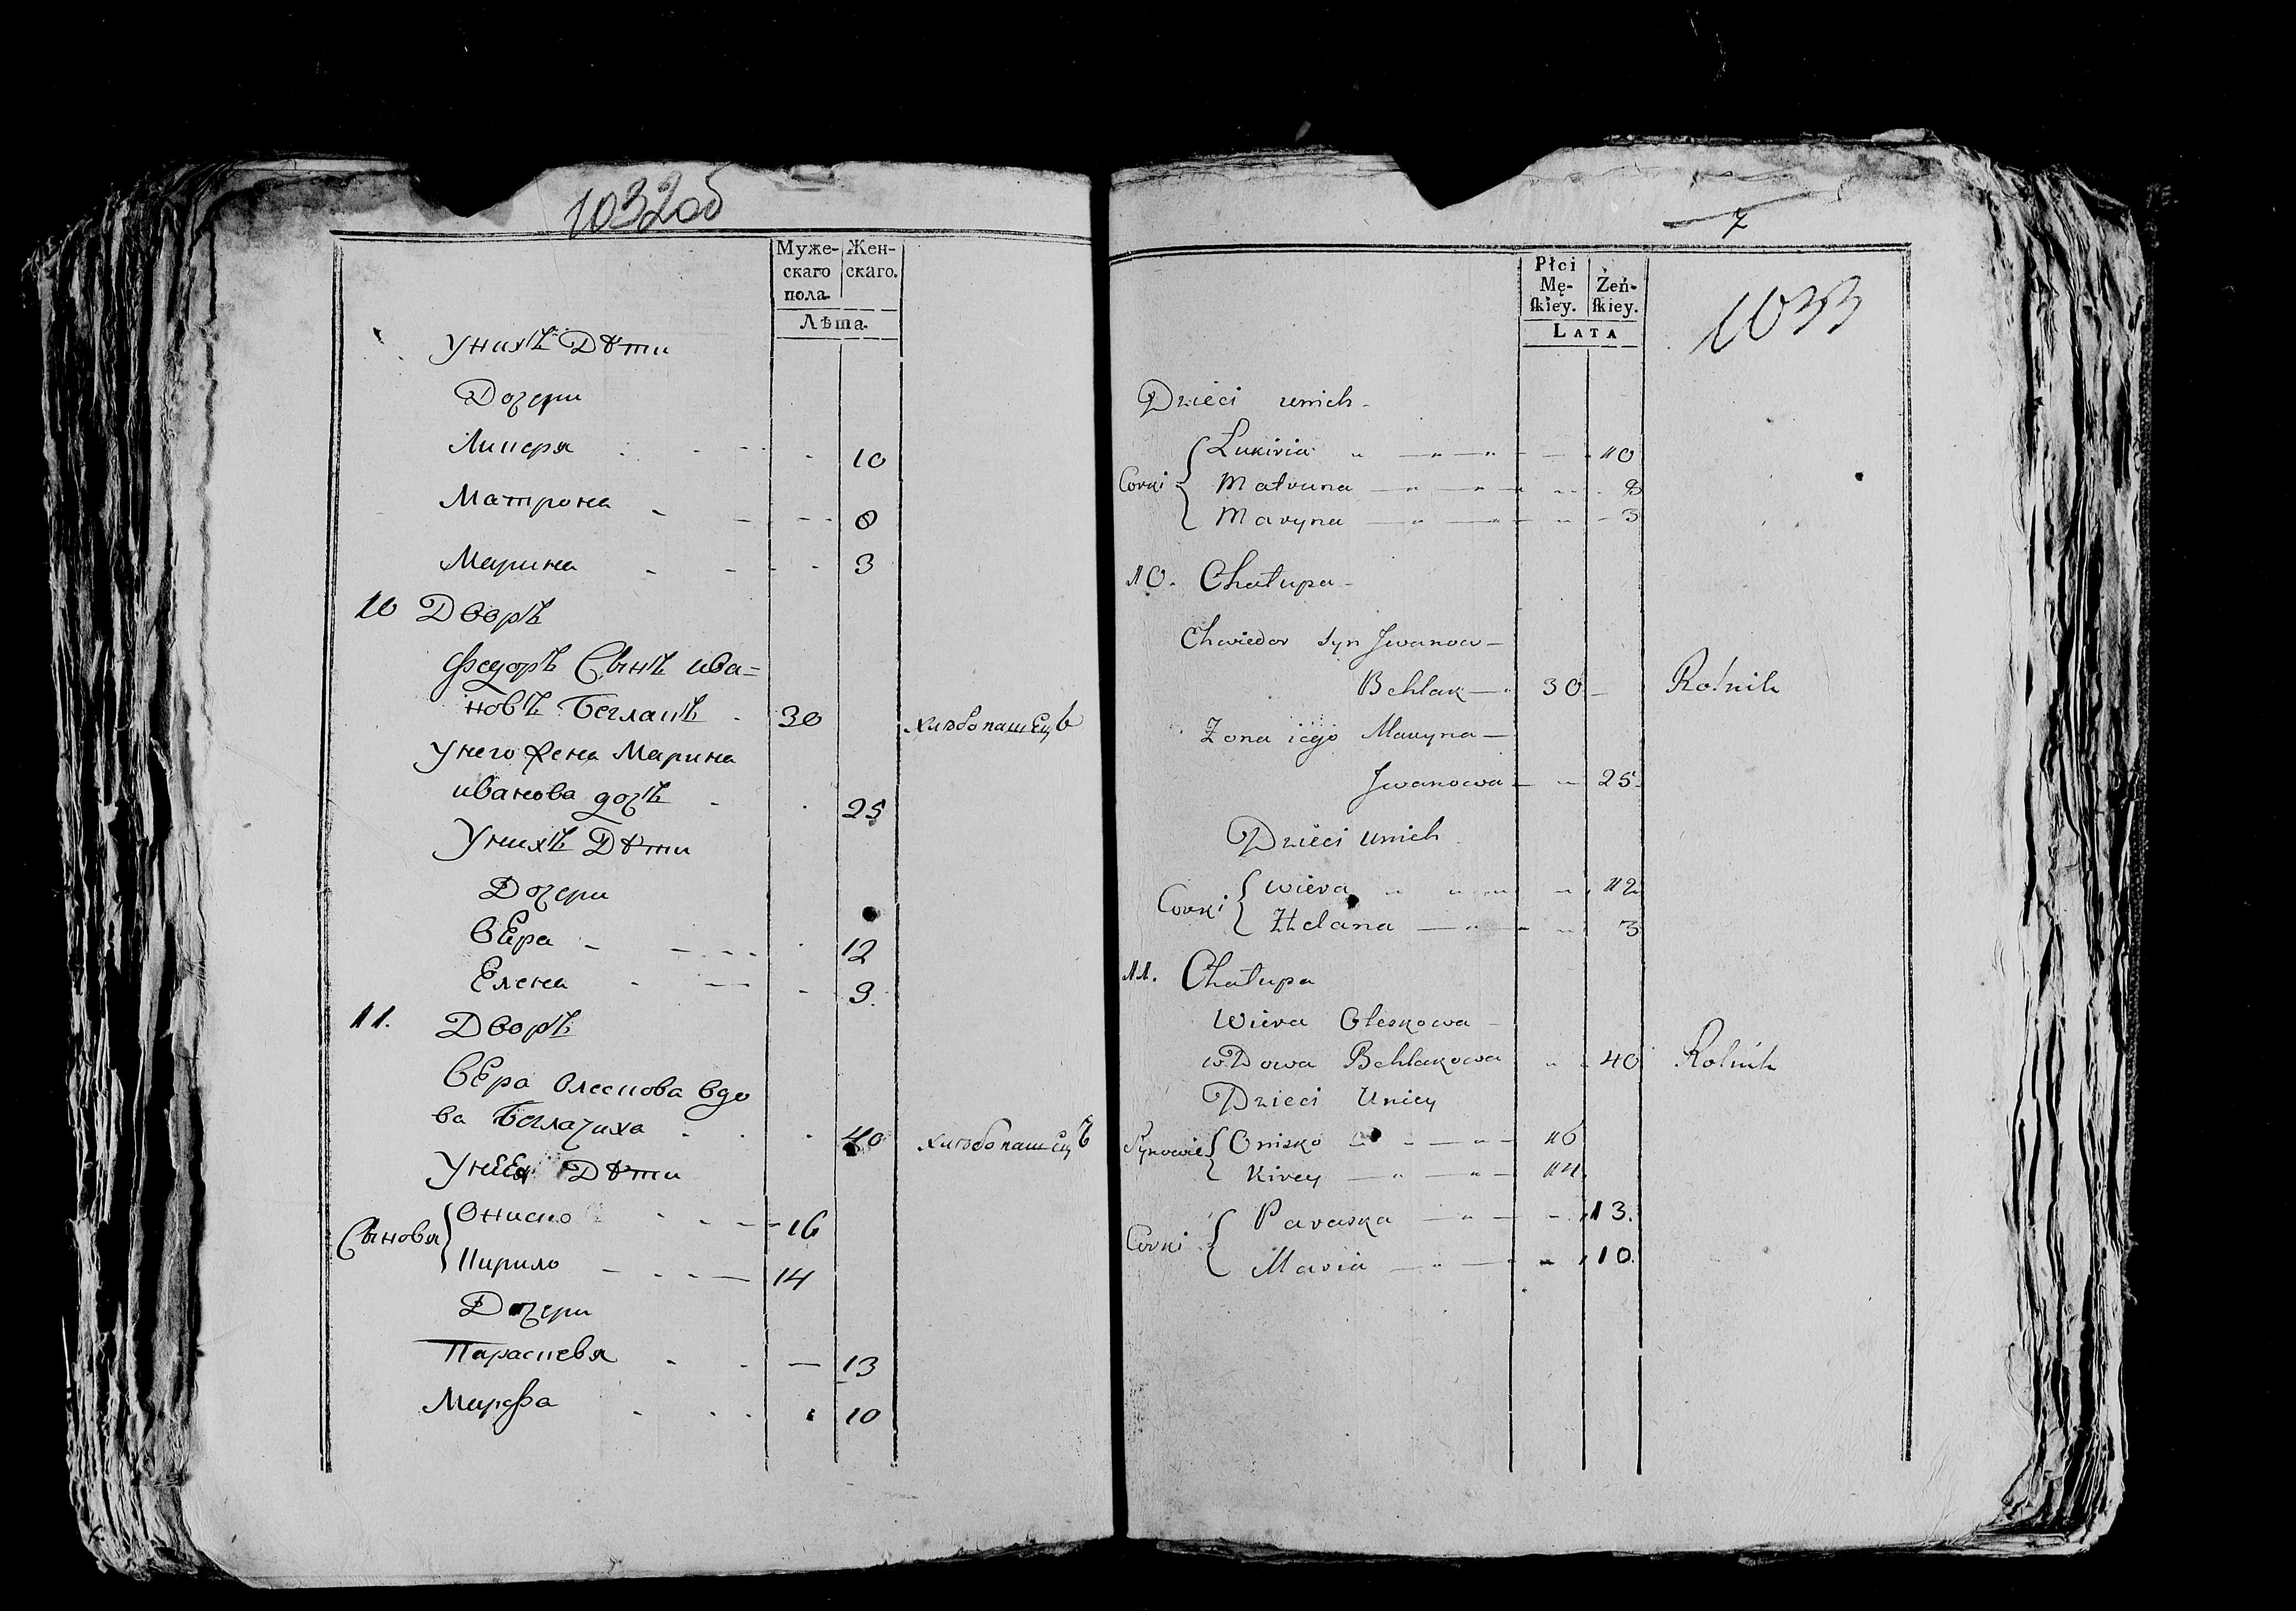 1032об
Муже- Жен-
скаго скаго.
пола
Лѣта.
Унихъ Дѣти
Дочери
Ликеря 10
Матрона 8
Марина 3
10 Дворъ
Федоръ Сынъ ива=
новъ Беглакъ 30 хлѣбопашецъ
Унего жена Марина
иванова дочъ 25
Унихъ Дѣти
Дочери
вЕра 12
Елена 3.
11. Дворъ
вЕра Олескова вдо
ва Беглачиха 40 хлѣбопашецъ
УнеЕя Дѣти
Сыновья Ониско 16
Кирило 14
Дочери
Параскевя 13
Марфа 10
7
1033
Płci Żeń-
Mę- skiey.
skiey.
LATA
Dzieci unich
Corki Lukiria 10
Matruna 8
Maryna 3
10. Chałupa
Chwiedor syn Jwanow
Behlak 30 Rolnik
Zona iego Maryna
Jwanowa 25
Dzieci unich
Corki Wiera 12
Helana 3
11. Chałupa
Wiera Oleskowa
wDowa Behlakowa 40 Rolnik
Dzieci Uniey
Synowie Onisko 16
Kirey 14
Corki Paraska 13.
Maria 10.